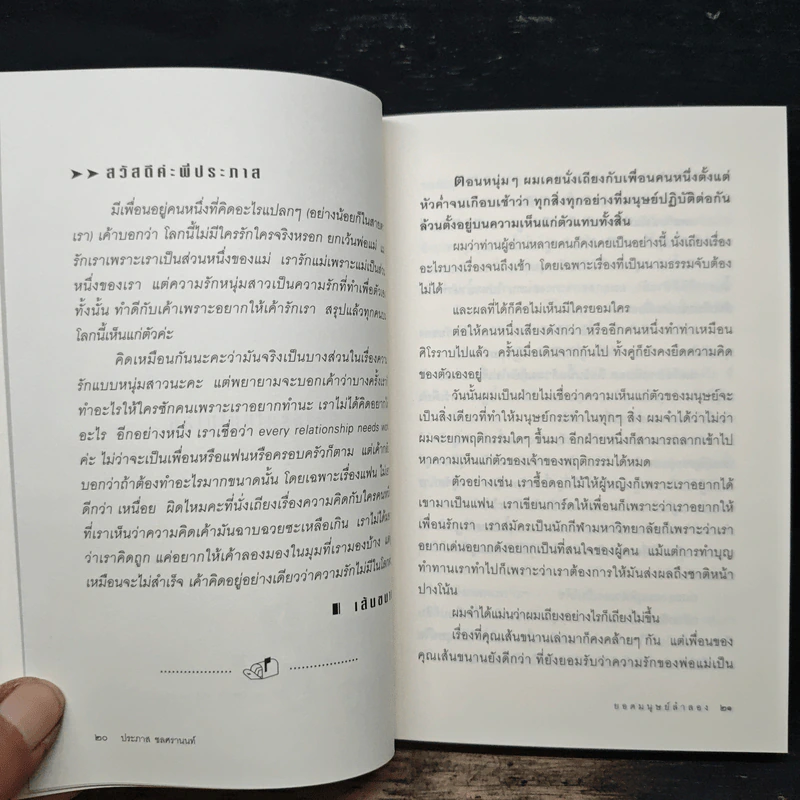 สวัสดีค่ะพี่ประภาส
มีเพื่อนอยู่คนหนึ่งที่คิดอะไรแปลกๆ (อย่างน้อยก็ในสายตา
เรา) เค้าบอกว่า โลกนี้ไม่มีใครรักใครจริงหรอก ยกเว้นพ่อแม่
รักเราเพราะเราเป็นส่วนหนึ่งของแม่ เรารักแม่เพราะแม่เป็นส่วน
หนึ่งของเรา แต่ความรักหนุ่มสาวเป็นความรักที่ทำเพื่อตัวเอง
ทั้งนั้น ทำดีกับเค้าเพราะอยากให้เค้ารักเรา สรุปแล้วทุกคน
โลกนี้เห็นแก่ตัวค่ะ
คิดเหมือนกันนะคะว่ามันจริงเป็นบางส่วนในเรื่อง
รักแบบหนุ่มสาวนะคะ แต่พยายามจะบอกเค้าว่าบางครั้ง
ทำอะไรให้ใครซักคนเพราะเราอยากทำนะ เราไม่ได้คิดอยากได้
อะไร อีกอย่างหนึ่ง เราเชื่อว่า every relationship needs
ค่ะ ไม่ว่าจะเป็นเพื่อนหรือแฟนหรือครอบครัวก็ตาม แต่เค้า
บอกว่าถ้าต้องทำอะไรมากขนาดนั้น โดยเฉพาะเรื่องแฟน
ดีกว่า เหนื่อย ผิดไหมคะที่นั่งเถียงเรื่องความคิดกับใครคน
ที่เราเห็นว่าความคิดเค้ามันฉาบฉวยซะเหลือเกิน เราไม่ได้
ว่าเราคิดถูก แค่อยากให้เค้าลองมองในมุมที่เรามองบ้าง
เหมือนจะไม่สำเร็จ เค้าคิดอยู่อย่างเดียวว่าความรักไม่มีใน
เส้นขนาน
๒๐ ประภาส ชลศรานนท์
ตอนหนุ่มๆ ผมเคยนั่งเถียงกับเพื่อนคนหนึ่งตั้งแต่
หัวค่ำจนเกือบเช้าว่า ทุกสิ่งทุกอย่างที่มนุษย์ปฏิบัติต่อกัน
ล้วนตั้งอยู่บนความเห็นแก่ตัวแทบทั้งสิ้น
ผมว่าท่านผู้อ่านหลายคนก็คงเคยเป็นอย่างนี้ นั่งเถียงเรื่อง
อะไรบางเรื่องจนถึงเช้า โดยเฉพาะเรื่องที่เป็นนามธรรมจับต้อง
ไม่ได้
และผลที่ได้ก็คือไม่เห็นมีใครยอมใคร
ต่อให้คนหนึ่งเสียงดังกว่า หรืออีกคนหนึ่งทำท่าเหมือน
ศิโรราบไปแล้ว ครั้นเมื่อเดินจากกันไป ทั้งคู่ก็ยังคงยึดความคิด
ของตัวเองอยู่
วันนั้นผมเป็นฝ่ายไม่เชื่อว่าความเห็นแก่ตัวของมนุษย์จะ
เป็นสิ่งเดียวที่ทำให้มนุษย์กระทำในทุกๆ สิ่ง ผมจำได้ว่าไม่ว่า
ผมจะยกพฤติกรรมใดๆ ขึ้นมา อีกฝ่ายหนึ่งก็สามารถลากเข้าไป
หาความเห็นแก่ตัวของเจ้าของพฤติกรรมได้หมด
ตัวอย่างเช่น เราซื้อดอกไม้ให้ผู้หญิงก็เพราะเราอยากได้
เขามาเป็นแฟน เราเขียนการ์ดให้เพื่อนก็เพราะว่าเราอยากให้
เพื่อนรักเรา เราสมัครเป็นนักกีฬามหาวิทยาลัยก็เพราะว่าเรา
อยากเด่นอยากดังอยากเป็นที่สนใจของผู้คน แม้แต่การทำบุญ
ทำทานเราทำไปก็เพราะว่าเราต้องการให้มันส่งผลถึงชาติหน้า
ปางโน้น
ผมจำได้แม่นว่าผมเถียงอย่างไรก็เถียงไม่ขึ้น
เรื่องที่คุณเส้นขนานเล่ามาก็คงคล้ายๆ กัน แต่เพื่อนของ
คุณเส้นขนานยังดีกว่า ที่ยังยอมรับว่าความรักของพ่อแม่เป็น
ยอดมนุษย์ลำลอง ๒๑